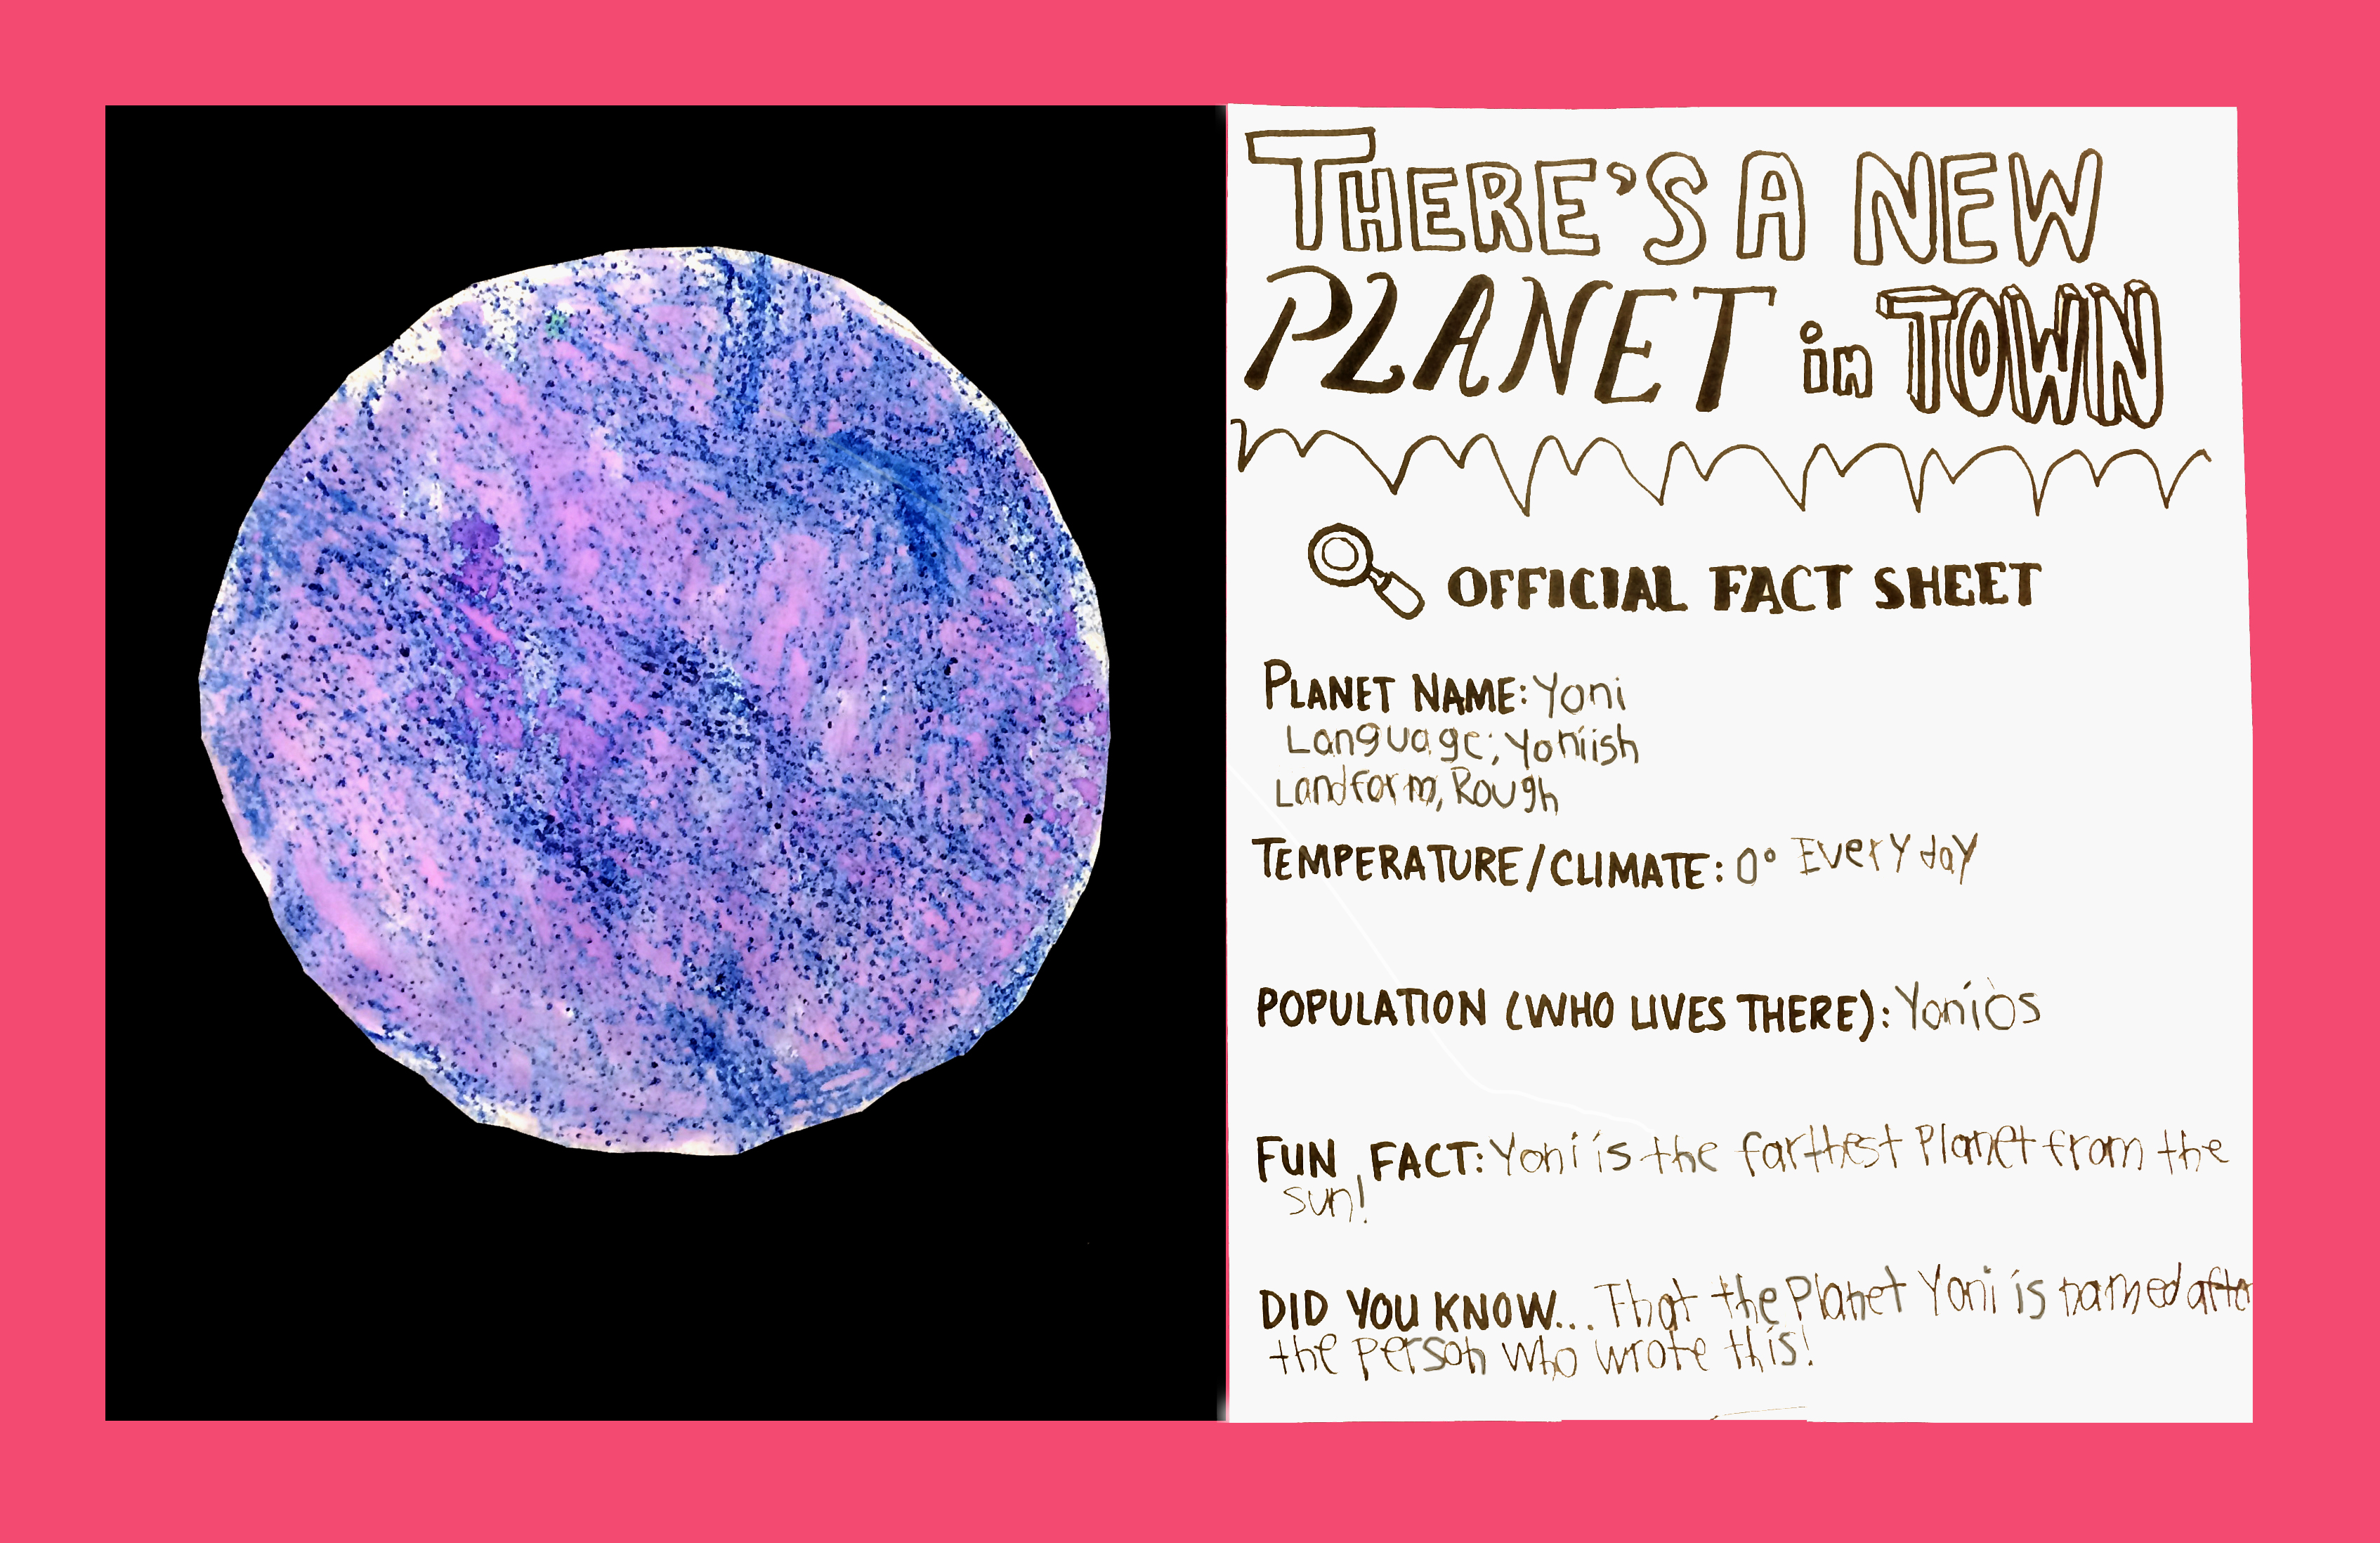 THERE'S A NEW
PLANET in TOWN
OFFICIAL FACT SHEET
PLANET NAME: Yoni
Language; Yoniish
Landform, Rough
TEMPERATURE/CLIMATE: 0° Every day
POPULATION (WHO LIVES THERE): Yonios
FUN FACT: Yoni is the farthest Planet from the
sun!
DID YOU KNOW... That the Planet Yoni is named after
the person who wrote this!